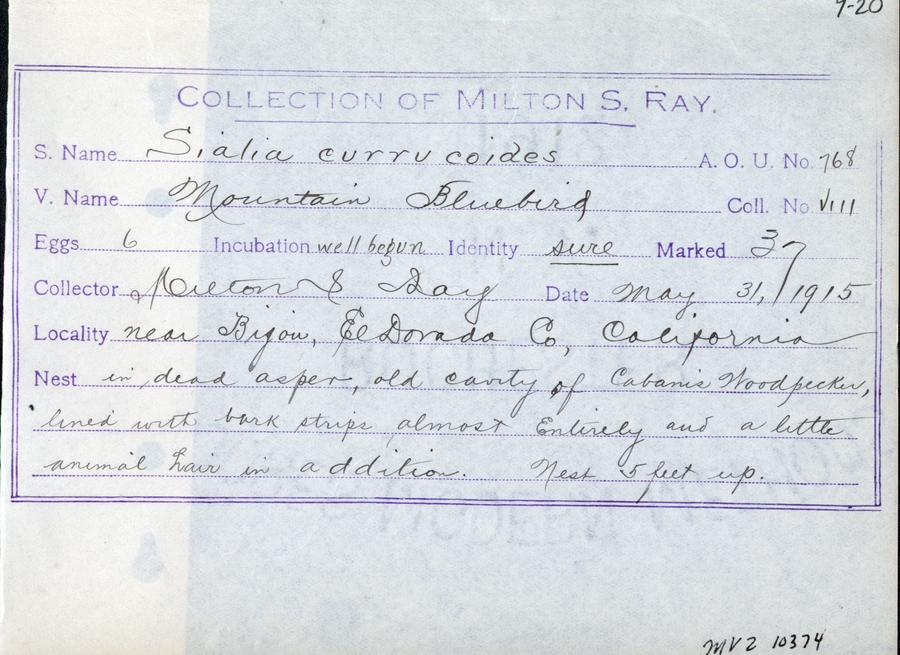 9-20
COLLECTION OF MILTON S. RAY.
S. Name Sialia currucoides A. O. U. No. 768
V. Name Mountain Bluebird Coll. No. VIII
Eggs 6 Incubation well begun Identity sure Marked 37
Collector Milton S Ray Date May 31, 1915
Locality near Bijou, El Dorado Co, California
Nest in dead aspen, old cavity of Cabanis Woodpecker,
lined with bark strips almost Entirely and a little
animal hair in addition. Nest 5 feet up.
MVZ 10374